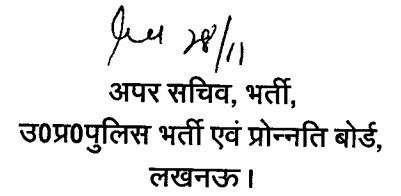 28/11
अपर सचिव, भर्ती,
उ0प्र0पुलिस भर्ती एवं प्रोन्नति बोर्ड,
लखनऊ।